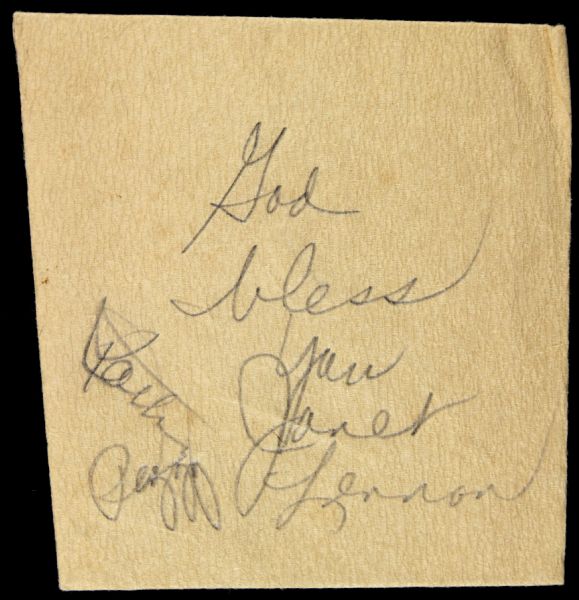 God
bless
you
Janet
Lennon
Kathy
Peggy